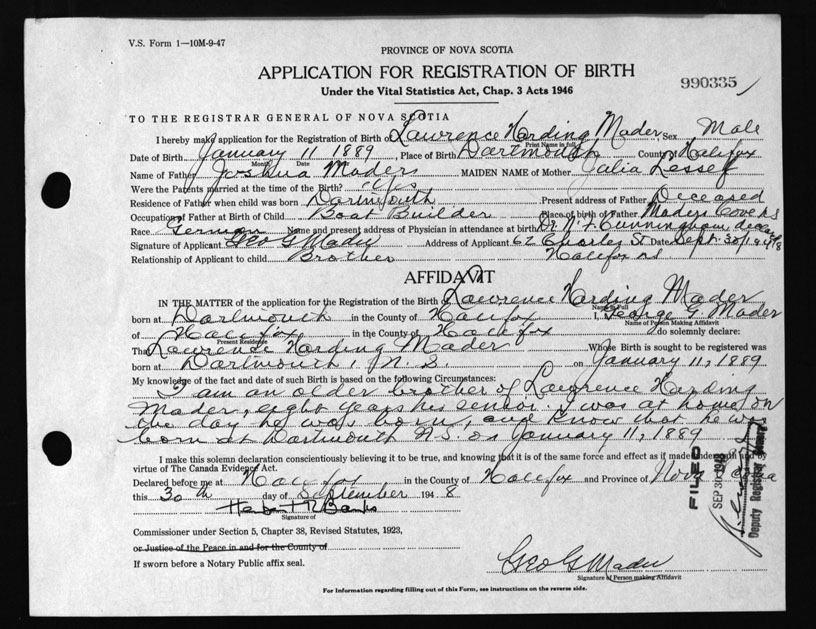 V.S. Form 1—10M-9-47
PROVINCE OF NOVA SCOTIA
APPLICATION FOR REGISTRATION OF BIRTH
990335
Under the Vital Statistics Act, Chap. 3 Acts 1946
TO THE REGISTRAR GENERAL OF NOVA SCOTIA
I hereby make application for the Registration of Birth of Lawrence Harding Mader Sex Male
Print Name in full
Date of Birth January 11 1889 Place of Birth Dartmouth County of Halifax
Month Date Year
Name of Father Joshua Mader MAIDEN NAME of Mother Julia Lessel
Were the Parents married at the time of the Birth? Yes
Residence of Father when child was born Dartmouth Present address of Father Deceased
Occupation of Father at Birth of Child Boat Builder Place of birth of Father Maders Cove NS
Race German Name and present address of Physician in attendance at birth Dr. N F Cunningham deceased
Signature of Applicant Geo G Mader Address of Applicant 62 Charles St Date Sept. 30/1948
Relationship of Applicant to child Brother Halifax NS
AFFIDAVIT
IN THE MATTER of the application for the Registration of the Birth of Lawrence Harding Mader
Name in Full
born at Dartmouth in the County of Halifax I, George G. Mader
Name of Person Making Affidavit
of Halifax in the County of Halifax do solemnly declare:
Present Residence
That Lawrence Harding Mader Whose Birth is sought to be registered was
born at Dartmouth, N.S. on January 11, 1889
My knowledge of the fact and date of such Birth is based on the following Circumstances:
I am an older brother of Lawrence Harding
Mader, eight years his senior. I was at home on
the day he was born, and know that he was
born at Dartmouth N.S. on January 11, 1889
I make this solemn declaration conscientiously believing it to be true, and knowing that it is of the same force and effect as if made under oath and by
virtue of The Canada Evidence Act.
Declared before me at Halifax in the County of Halifax and Province of Nova Scotia
this 30th day of September 1948
Herbert R Banks
Signature of
Commissioner under Section 5, Chapter 38, Revised Statutes, 1923,
or Justice of the Peace in and for the County of
If sworn before a Notary Public affix seal.
Geo G Mader
Signature of Person making Affidavit
For Information regarding filling out of this Form, see instructions on the reverse side.
FILED
SEP 30 1948
Deputy Registrar General